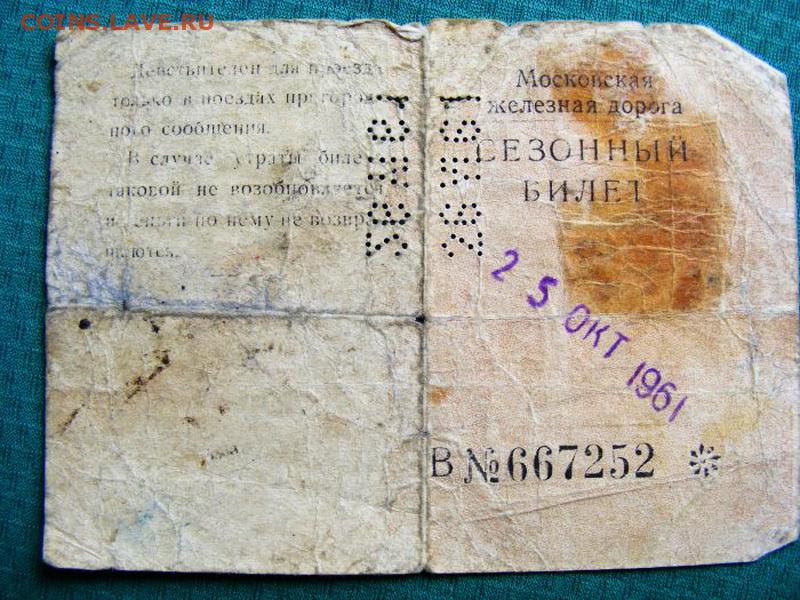 COINS.LAVE.RU
Действителен для проезда
только в поездах пригород-
ного сообщения.
В случае утраты билет
таковой не возобновляется
и деньги по нему не возвра-
щаются.
Московская
железная дорога
СЕЗОННЫЙ
БИЛЕТ
25 ОКТ 1961
В №667252